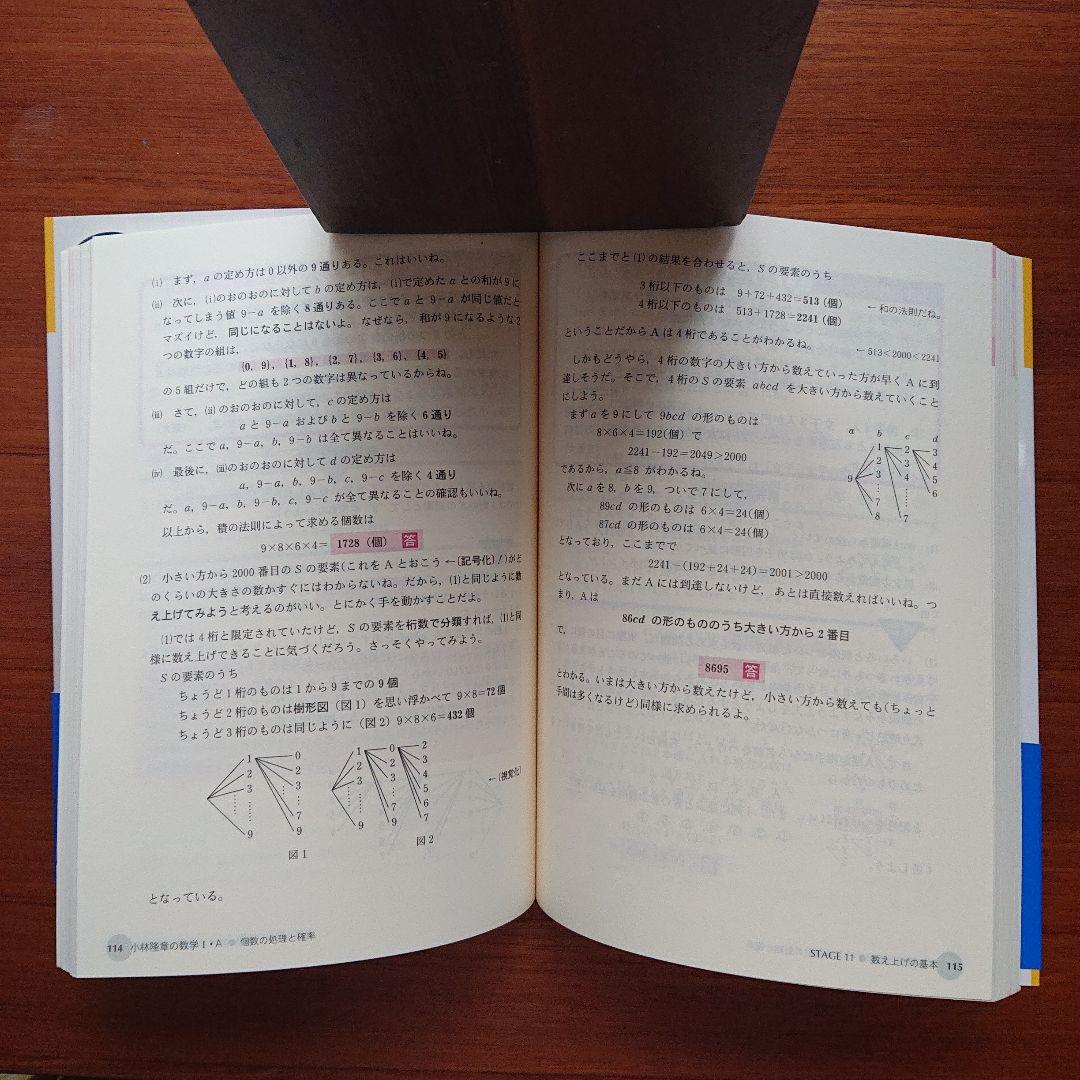 (i) まず，aの定め方は0以外の9通りある。これはいいね。
(ii) 次に，(i)のおのおのに対してbの定め方は，(i)で定めたaとの和が9に
なってしまう値 9−a を除く8通りある。ここでaと9−aが同じ値だと
マズイけど，同じになることはないよ。なぜなら，和が9になるような2
つの数字の組は，
{0, 9}, {1, 8}, {2, 7}, {3, 6}, {4, 5}
の5組だけで，どの組も2つの数字は異なっているからね。
(iii) さて，(ii)のおのおのに対して，cの定め方は
aと9−aおよびbと9−bを除く6通り
だ。ここでa, 9−a, b, 9−bは全て異なることはいいね。
(iv) 最後に，(iii)のおのおのに対してdの定め方は
a, 9−a, b, 9−b, c, 9−c を除く4通り
だ。a, 9−a, b, 9−b, c, 9−c が全て異なることの確認もいいね。
以上から，積の法則によって求める個数は
9×8×6×4= 1728（個） 答
(2) 小さい方から2000番目のSの要素(これをAとおこう ←(記号化)!)がど
のくらいの大きさの数かすぐにはわからないね。だから，(1)と同じように数
え上げてみようと考えるのがいい。とにかく手を動かすことだよ。
(1)では4桁と限定されていたけど，Sの要素を桁数で分類すれば，(1)と同
様に数え上げできることに気づくだろう。さっそくやってみよう。
Sの要素のうち
ちょうど1桁のものは1から9までの9個
ちょうど2桁のものは樹形図（図1）を思い浮かべて 9×8=72個
ちょうど3桁のものは同じように（図2）9×8×6=432個
1 0
2 2
3 3
7
9 9
図1
1 0 2
2 2 3
3 3 4
5
7 6
9 9 7
図2
←(視覚化)
となっている。
114 小林隆章の数学I・A 個数の処理と確率
ここまでと(1)の結果を合わせると，Sの要素のうち
3桁以下のものは 9+72+432=513（個）
4桁以下のものは 513+1728=2241（個）
←和の法則だね。
ということだからAは4桁であることがわかるね。
←513<2000<2241
しかもどうやら，4桁の数字の大きい方から数えていった方が早くAに到
達しそうだ。そこで，4桁のSの要素 abcd を大きい方から数えていくこと
にしよう。
まずaを9にして 9bcd の形のものは
8×6×4=192(個）で
2241−192=2049>2000
であるから，a≦8 がわかるね。
a b c d
1 2 3
2 3 4
9 3 4 5
7 6
8 7
次にaを8，bを9，ついで7にして，
89cd の形のものは 6×4=24(個)
87cd の形のものは 6×4=24(個)
となっており，ここまでで
2241−(192+24+24)=2001>2000
となっている。まだAには到達しないけど，あとは直接数えればいいね。つ
まり，Aは
86cd の形のもののうち大きい方から2番目
で，
8695 答
とわかる。いまは大きい方から数えたけど，小さい方から数えても(ちょっと
手間は多くなるけど)同様に求められるよ。
STAGE 11 数え上げの基本 115